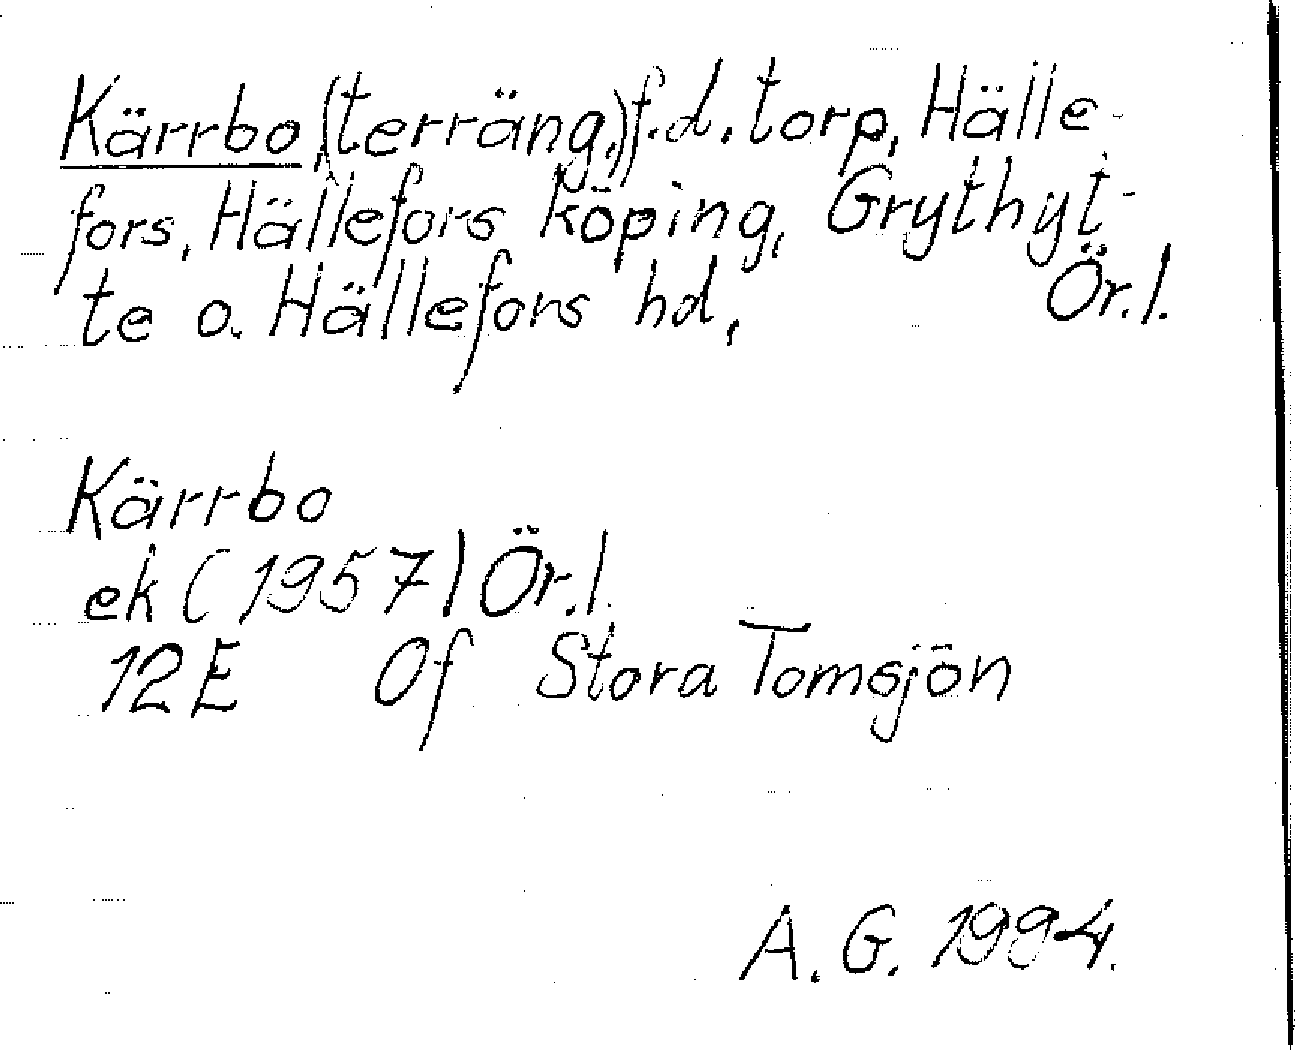 Kärrbo, (terräng,) f.d. torp, Hälle-
fors, Hällefors köping, Grythyt-
te o. Hällefors hd, Ör.l.
Kärrbo
ek (1957) Ör.l.
12E 0f Stora Tomsjön
A.G. 1994.